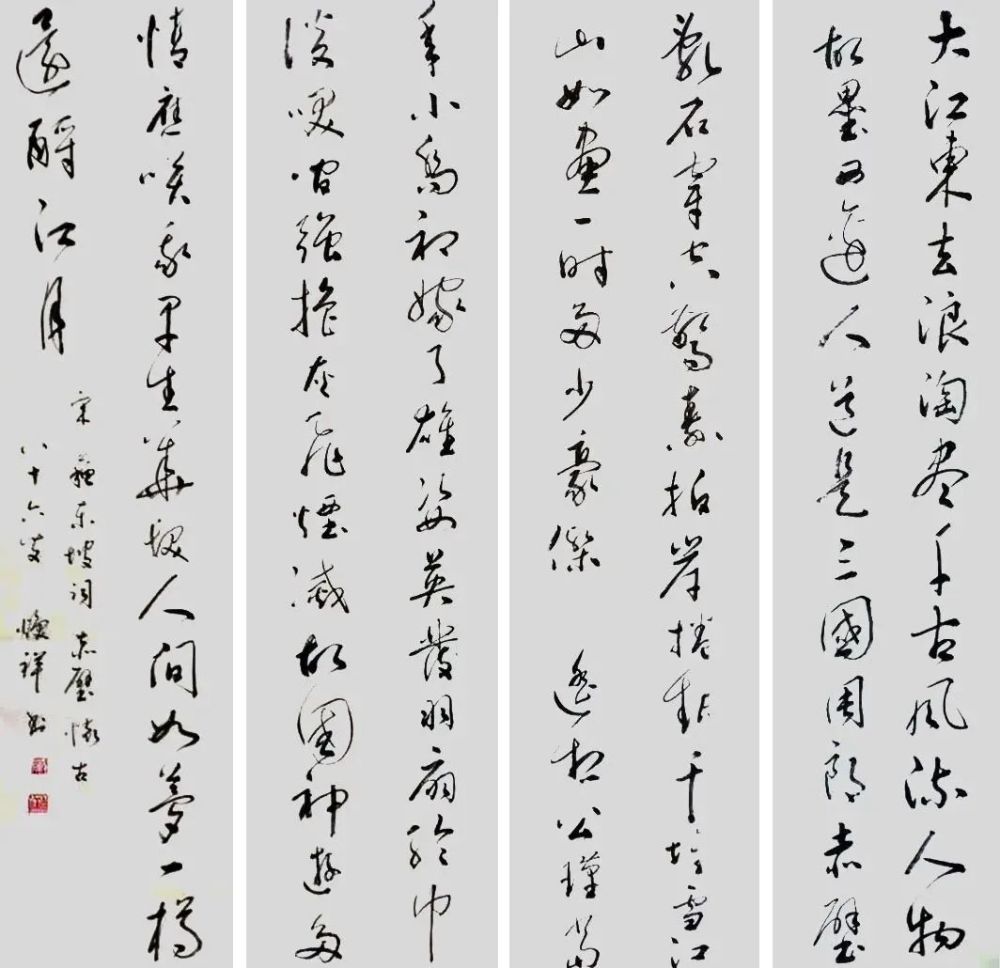 大江東去浪淘尽千古風流人物
故壘西邊人道是三國周郎赤壁
亂石穿空驚濤拍岸捲起千堆雪江
山如畫一時多少豪傑 遙想公瑾當
年小喬初嫁了雄姿英發羽扇綸巾
談咲間强擄灰飛煙滅故國神遊多
情應咲我早生華髮人間如夢一樽
還酹江月
宋 蘇東坡詞 赤壁懷古
八十六叟 煥祥書